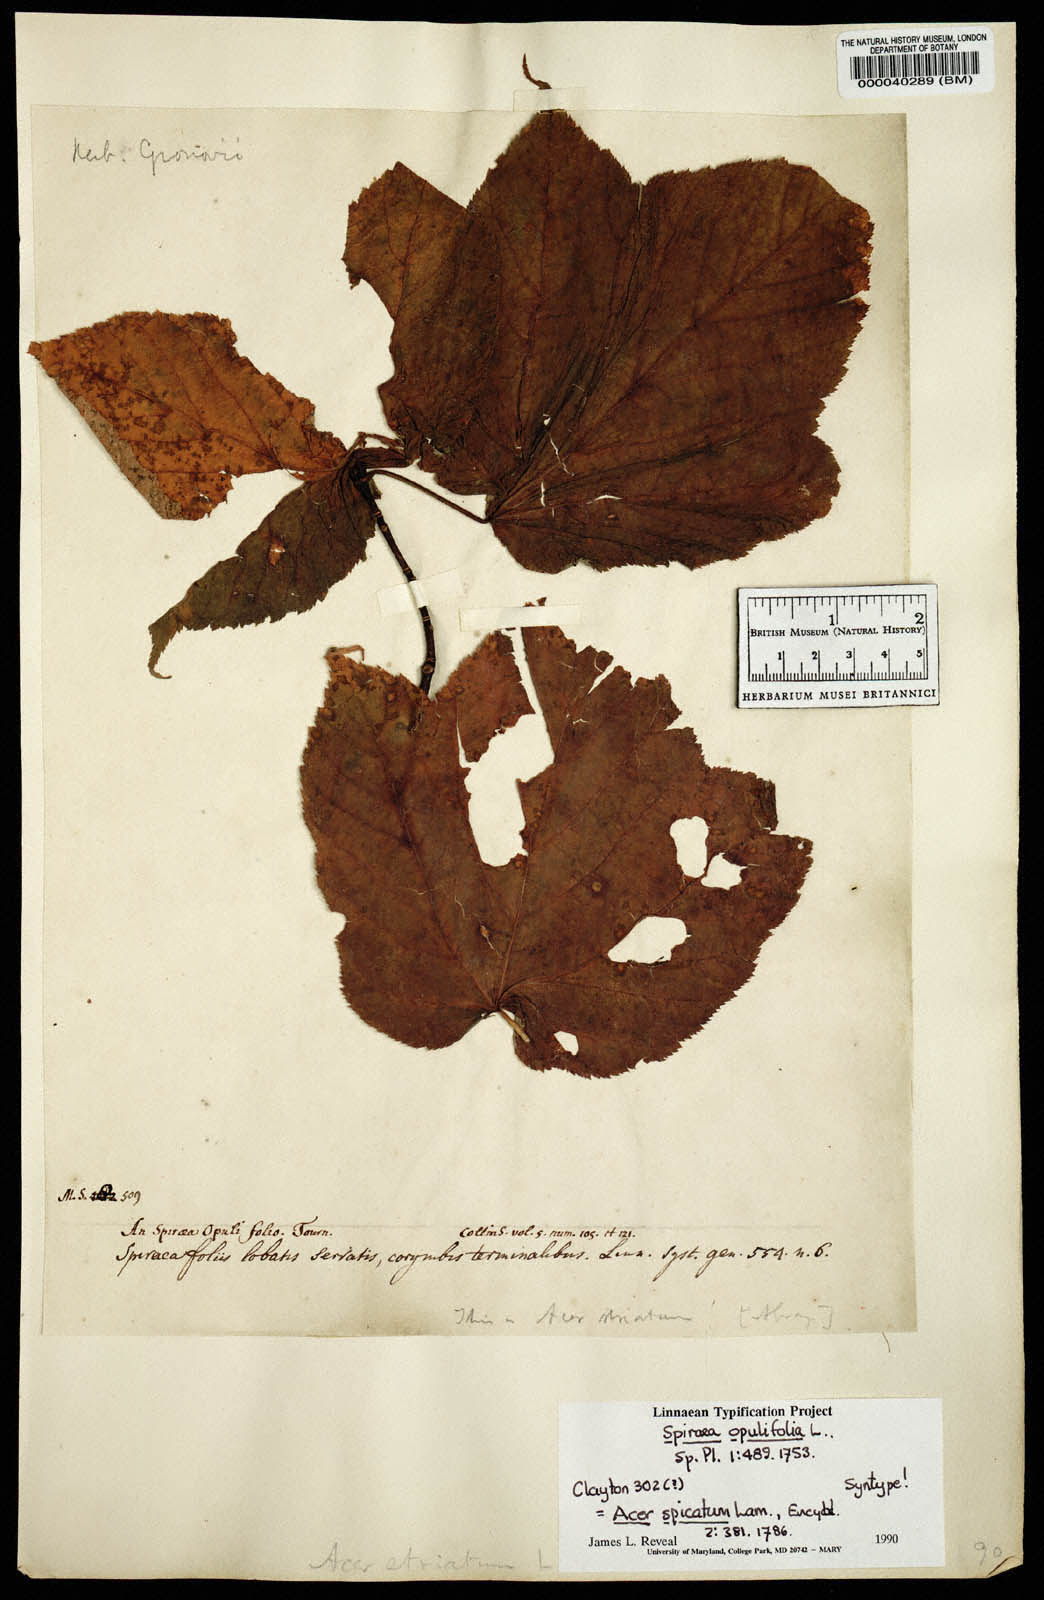 THE NATURAL HISTORY MUSEUM, LONDON
DEPARTMENT OF BOTANY
000040289 (BM)
Herb. Gronovii
1 2
BRITISH MUSEUM (NATURAL HISTORY)
1 2 3 4 5
HERBARIUM MUSEI BRITANNICI
M. S. 509
An Spiræa Opuli folio. Tourn. Collins. vol. 5. num. 105. et 121.
Spiraea foliis lobatis serratis, corymbis terminalibus. Linn. Syst. gen. 554. n. 6.
This is Acer striatum!
Linnaean Typification Project
Spiraea opulifolia L.,
Sp. Pl. 1:489. 1753.
Clayton 302(?) Syntype!
= Acer spicatum Lam., Encycl.
2: 381. 1786.
James L. Reveal 1990
University of Maryland, College Park, MD 20742 – MARY
Acer striatum L
90